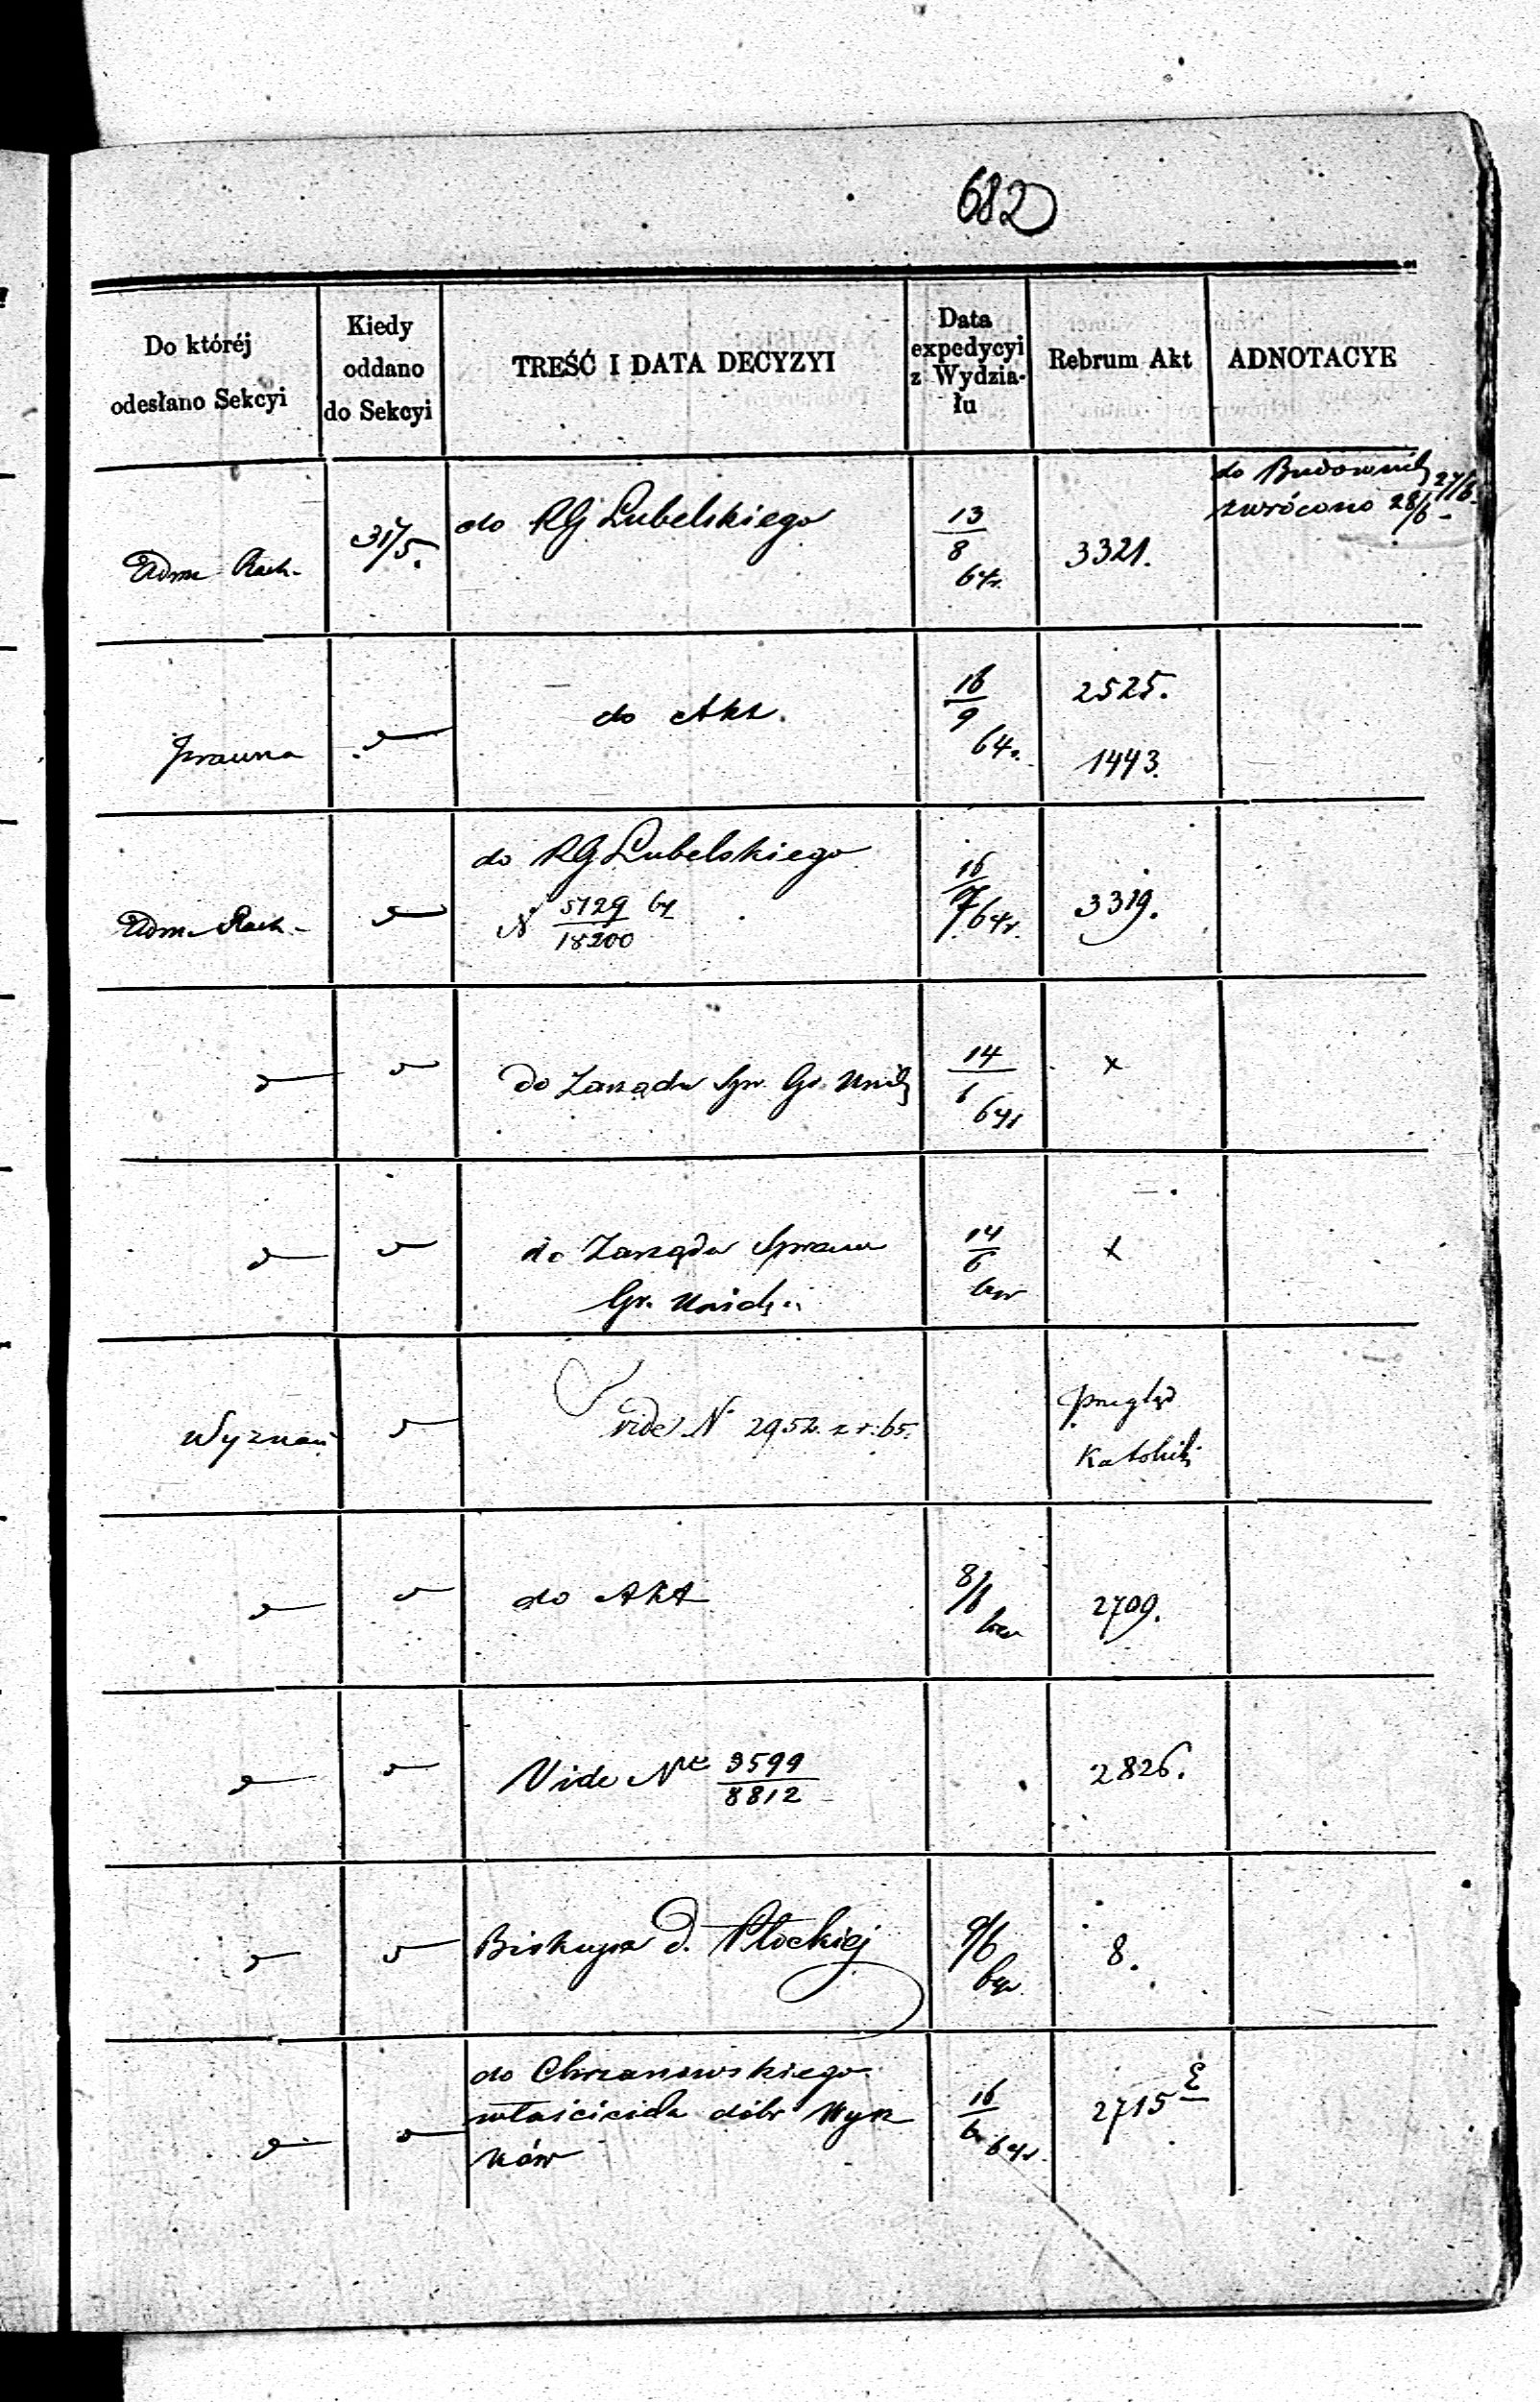 682
Do któréj odesłano Sekcyi
Kiedy oddano do Sekcyi
TREŚĆ I DATA DECYZYI
Data expedycyi z Wydziału
Rebrum Akt
ADNOTACYE
Adm Rach. 31/5. do RG Lubelskiego 13/8 64r. 3321. do Budownik 27/6. zwrócono 28/6
Prawna do Akt. 16/9 64r. 2525. 1443.
Adm Rach. do RG Lubelskiego N 5129/18200 64 16/7 64r. 3319.
do Zarządu Spr. Gr. Unick 14/6 64r x
do Zarządu Spraw Gr. Unick. 14/6 64r x
Wyznań vide N 2952. z r. 65. Przegląd Katolicki
do Akt 8/6 64r 2709.
Vide Nr 3599/8812 2826.
Biskupa d. Płockiej 9/6 64r 8.
do Chrzanowskiego
właściciela dóbr Wyszków 16/6 64r. 2715 E